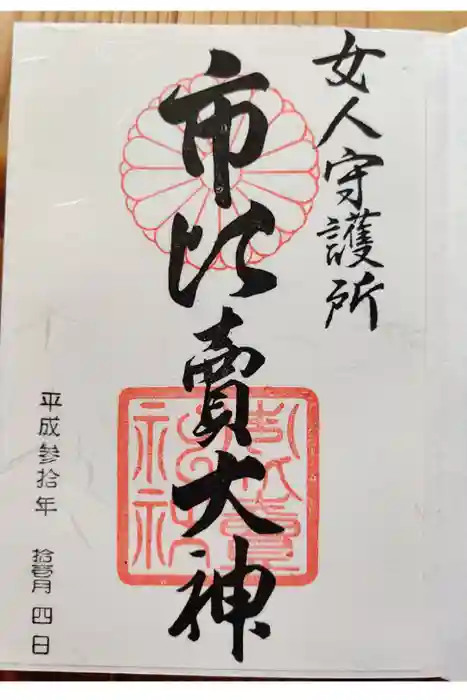 女人守護所
市比賣大神
平成参拾年 拾壱月 四日